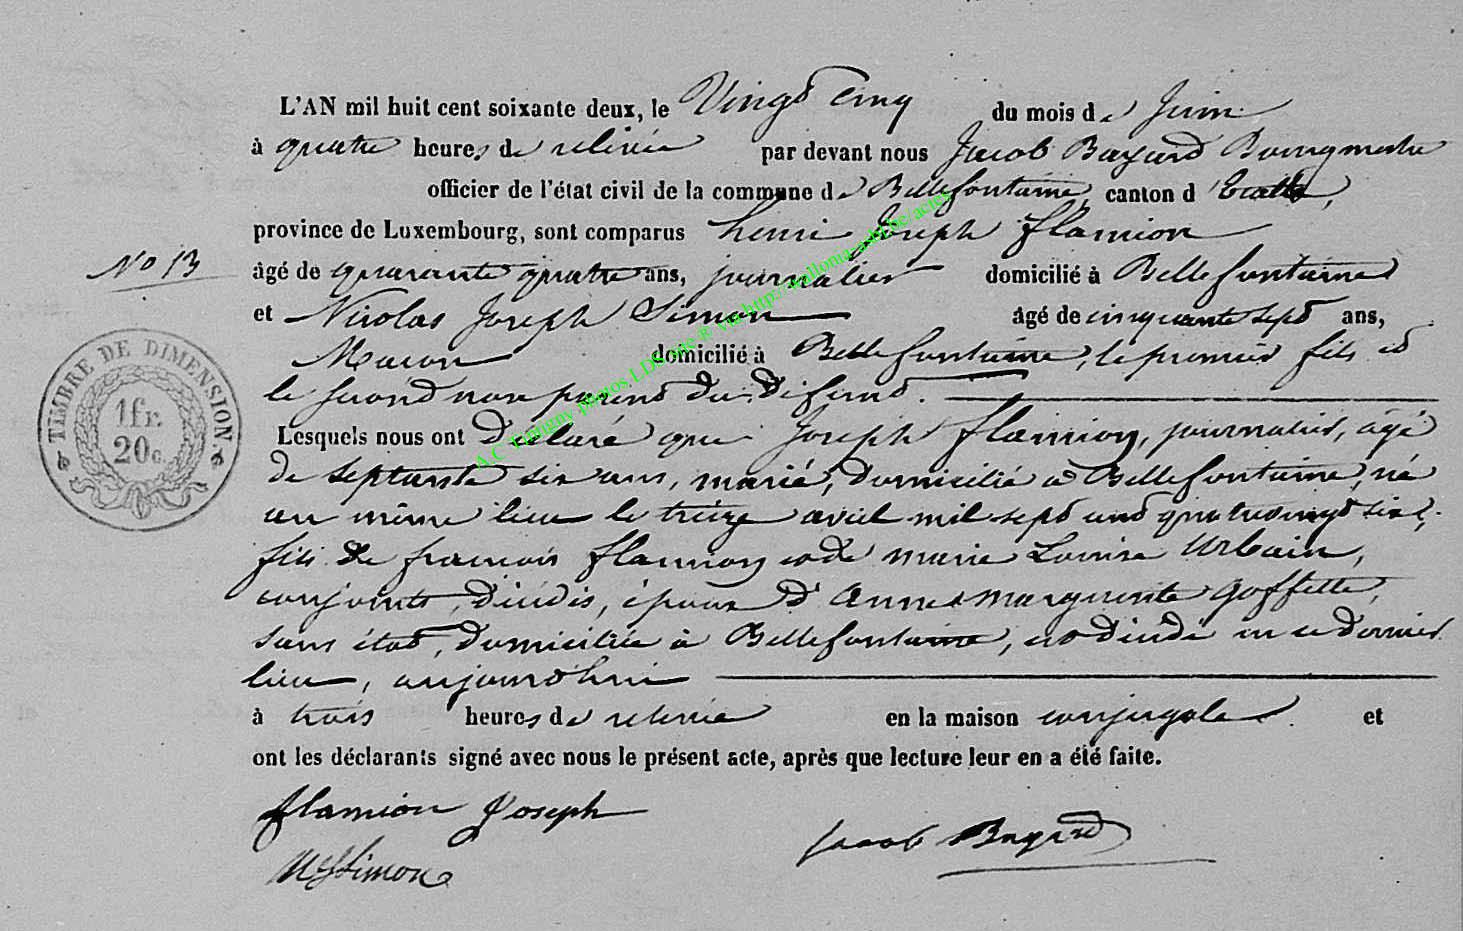 L'AN mil huit cent soixante deux, le Vingt cinq du mois de Juin
à quatre heures de relevée par devant nous Jacob Bayard Bourgmestre
officier de l'état civil de la commune de Bellefontaine, canton d'Etalle,
province de Luxembourg, sont comparus henri Joseph flamion
No 13
âgé de quarante quatre ans, journalier domicilié à Bellefontaine
et Nicolas Joseph Simon âgé de cinquante sept ans,
Macon domicilié à Bellefontaine, le premier fils et
le second non parent du défunt.
Lesquels nous ont Déclaré que Joseph flamion, journalier, agé
de septante six ans, marié, domicilié à Bellefontaine, né
au même lieu le treize avril mil sept cent quatrevingt six,
fils de francois flamion et de marie Louise Urbain,
conjoints, décédés, époux d'Anne marguerite goffette,
sans état, domiciliée à Bellefontaine, est décédé en ce dernier
lieu, aujourd'hui
à trois heures de relevée en la maison conjugale. et
ont les déclarants signé avec nous le présent acte, après que lecture leur en a été faite.
flamion Joseph
NJSimon
Jacob Bayard
TIMBRE DE DIMENSION
1 fr.
20 c.
A.C Tintigny photos LDS mic ® via http://wallonia-asbl.be/actes